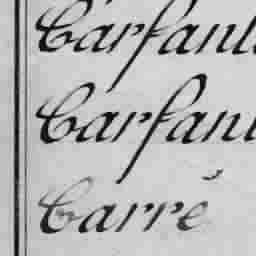 Carfant
Carfant
Carré